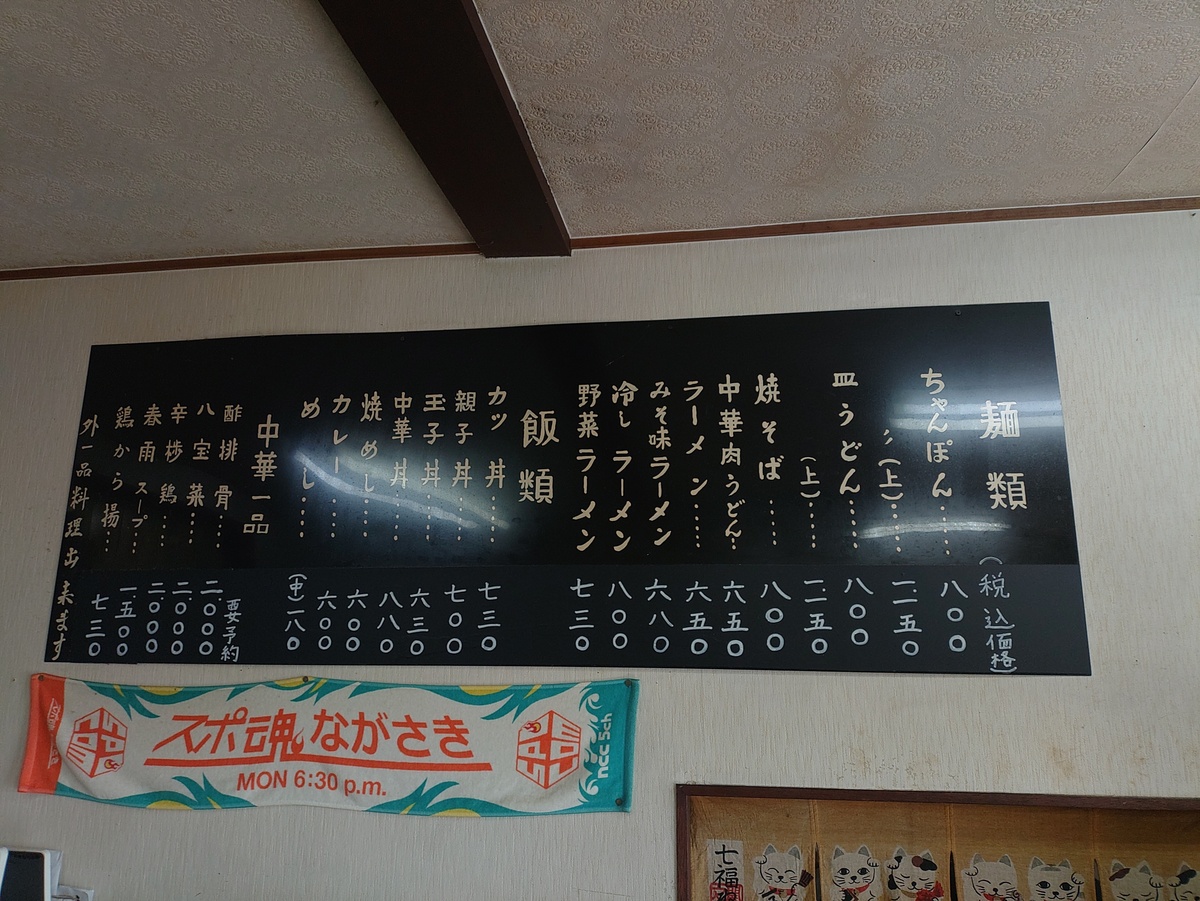 麺類
(税込価格)
ちゃんぽん…… 八〇〇
〃(上)…… 一.一五〇
皿うどん…… 八〇〇
(上)…… 一.一五〇
焼そば…… 八〇〇
中華肉うどん… 六五〇
ラーメン…… 六五〇
みそ味ラーメン 六八〇
冷しラーメン 八〇〇
野菜ラーメン 七三〇
飯類
カツ丼…… 七三〇
親子丼…… 七〇〇
玉子丼…… 六三〇
中華丼…… 八八〇
焼めし…… 六〇〇
カレー…… 六〇〇
めし…… (中)一八〇
中華一品
要予約
酢排骨…… 二.〇〇〇
八宝菜…… 二.〇〇〇
辛鶏…… 二.〇〇〇
春雨スープ… 一.五〇〇
鶏から揚… 七三〇
外一品料理出来ます
スポ魂ながさき
MON 6:30 p.m.
ncc 5ch
七福